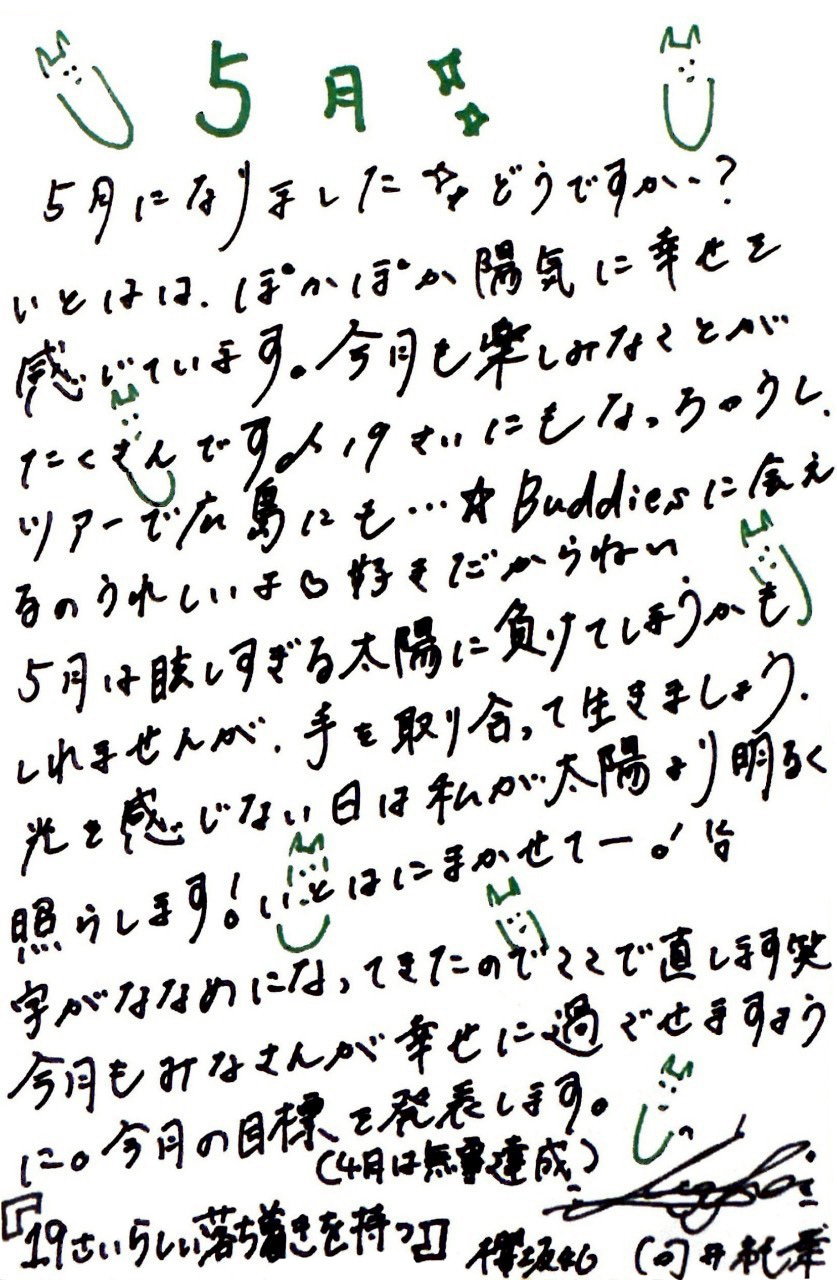 5月
5月になりました どうですか…?
いとはは、ぽかぽか陽気に幸せを
感じています。今月も楽しみなことが
たくさんです。19さいにもなっちゃうし、
ツアーで広島にも…☆Buddiesに会え
るのうれしいよ♡好きだからねい
5月は眩しすぎる太陽に負けてしまうかも
しれませんが、手を取り合って生きましょう、
光を感じない日は私が太陽より明るく
照らします!いとはにまかせてー。!
字がななめになってきたのでここで直します笑
今月もみなさんが幸せに過ごせますよう
に。今月の目標を発表します。
(4月は無事達成)
『19さいらしい落ち着きを持つ』
櫻坂46 (向井純葉